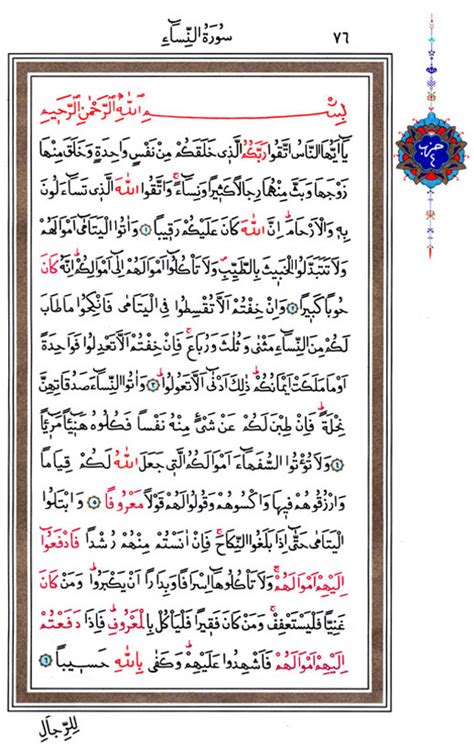 ٧٦
سورة النساء
بسم الله الرحمن الرحيم
يَا اَيُّهَا النَّاسُ اتَّقُوا رَبَّكُمُ الَّذى خَلَقَكُمْ مِنْ نَفْسٍ وَاحِدَةٍ وَخَلَقَ مِنْهَا
زَوْجَهَا وَبَثَّ مِنْهُمَا رِجَالًا كَثيرًا وَنِسَاءً وَاتَّقُوا اللّٰهَ الَّذى تَسَاءَلُونَ
بِه وَالْاَرْحَامَ اِنَّ اللّٰهَ كَانَ عَلَيْكُمْ رَقيبًا ١ وَاٰتُوا الْيَتَامٰى اَمْوَالَهُمْ
وَلَا تَتَبَدَّلُوا الْخَبيثَ بِالطَّيِّبِ وَلَا تَاْكُلُوا اَمْوَالَهُمْ اِلٰى اَمْوَالِكُمْ اِنَّهُ كَانَ
حُوبًا كَبيرًا ٢ وَاِنْ خِفْتُمْ اَلَّا تُقْسِطُوا فِى الْيَتَامٰى فَانْكِحُوا مَا طَابَ
لَكُمْ مِنَ النِّسَاءِ مَثْنٰى وَثُلٰثَ وَرُبَاعَ فَاِنْ خِفْتُمْ اَلَّا تَعْدِلُوا فَوَاحِدَةً
اَوْ مَا مَلَكَتْ اَيْمَانُكُمْ ذٰلِكَ اَدْنٰى اَلَّا تَعُولُوا ٣ وَاٰتُوا النِّسَاءَ صَدُقَاتِهِنَّ
نِحْلَةً فَاِنْ طِبْنَ لَكُمْ عَنْ شَىْءٍ مِنْهُ نَفْسًا فَكُلُوهُ هَنيئًا مَريئًا
٤ وَلَا تُؤْتُوا السُّفَهَاءَ اَمْوَالَكُمُ الَّتى جَعَلَ اللّٰهُ لَكُمْ قِيَامًا
وَارْزُقُوهُمْ فيهَا وَاكْسُوهُمْ وَقُولُوا لَهُمْ قَوْلًا مَعْرُوفًا ٥ وَابْتَلُوا
الْيَتَامٰى حَتّٰى اِذَا بَلَغُوا النِّكَاحَ فَاِنْ اٰنَسْتُمْ مِنْهُمْ رُشْدًا فَادْفَعُوا
اِلَيْهِمْ اَمْوَالَهُمْ وَلَا تَاْكُلُوهَا اِسْرَافًا وَبِدَارًا اَنْ يَكْبَرُوا وَمَنْ كَانَ
غَنِيًّا فَلْيَسْتَعْفِفْ وَمَنْ كَانَ فَقيرًا فَلْيَاْكُلْ بِالْمَعْرُوفِ فَاِذَا دَفَعْتُمْ
اِلَيْهِمْ اَمْوَالَهُمْ فَاَشْهِدُوا عَلَيْهِمْ وَكَفٰى بِاللّٰهِ حَسيبًا ٦
لِلرِّجَالِ
حزب
٤